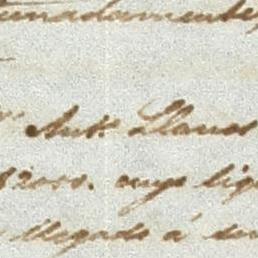 unadamente
Antº Llanos
$2000. cuyo liq
llegado á du